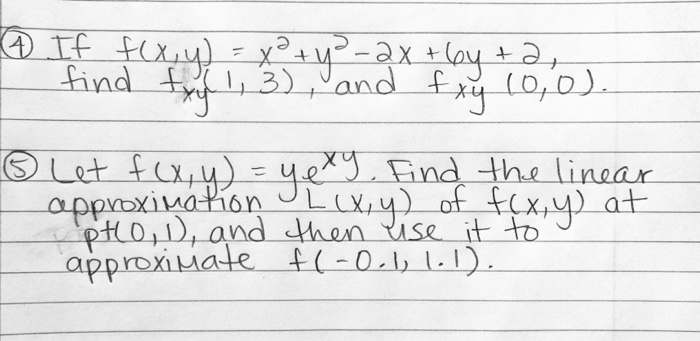 ④ If f(x,y) = x²+y²-2x+6y+2,
find fxy(1,3), and fxy (0,0).
⑤ Let f(x,y) = ye^xy. Find the linear
approximation L(x,y) of f(x,y) at
pt(0,1), and then use it to
approximate f(-0.1, 1.1).